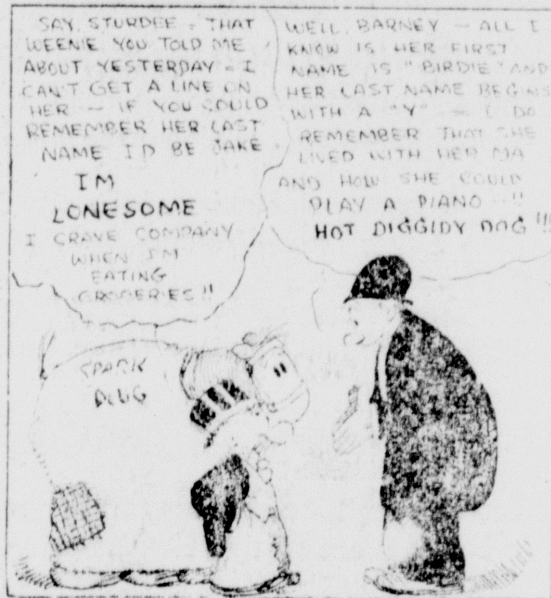 SAY, STURDEE - THAT
WEENIE YOU TOLD ME
ABOUT YESTERDAY - I
CAN'T GET A LINE ON
HER - IF YOU COULD
REMEMBER HER LAST
NAME I'D BE JAKE
I'M
LONESOME
I CRAVE COMPANY
WHEN I'M
EATING
GROCERIES!!
WELL, BARNEY - ALL I
KNOW IS HER FIRST
NAME IS "BIRDIE" AND
HER LAST NAME BEGINS
WITH A "Y" - I DO
REMEMBER THAT SHE
LIVED WITH HER MA
AND HOW SHE COULD
PLAY A PIANO - !!
HOT DIGGIDY DOG !!!
SPARK
PLUG